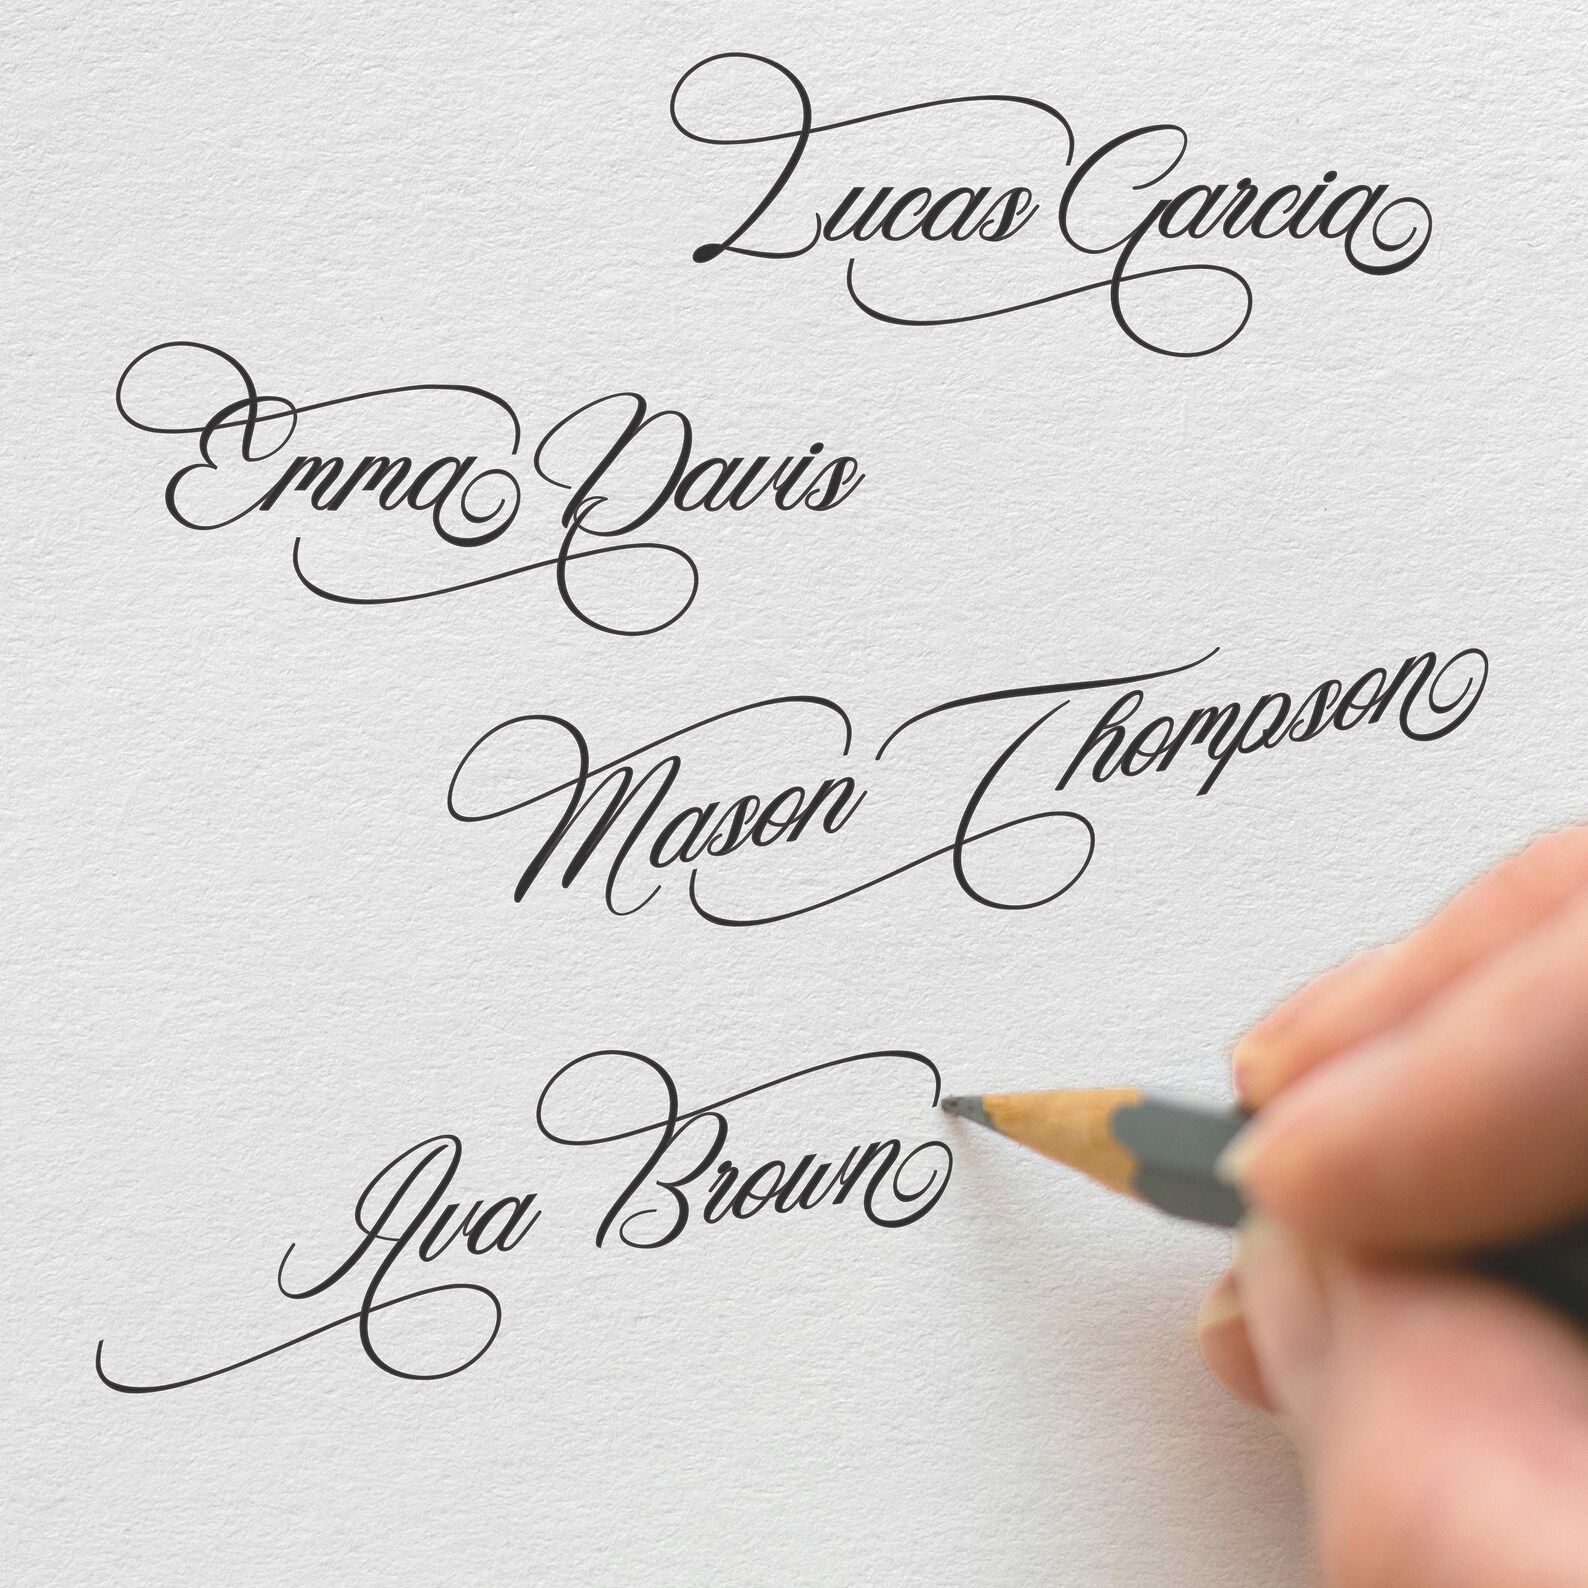 Lucas Garcia
Emma Davis
Mason Thompson
Ava Brown